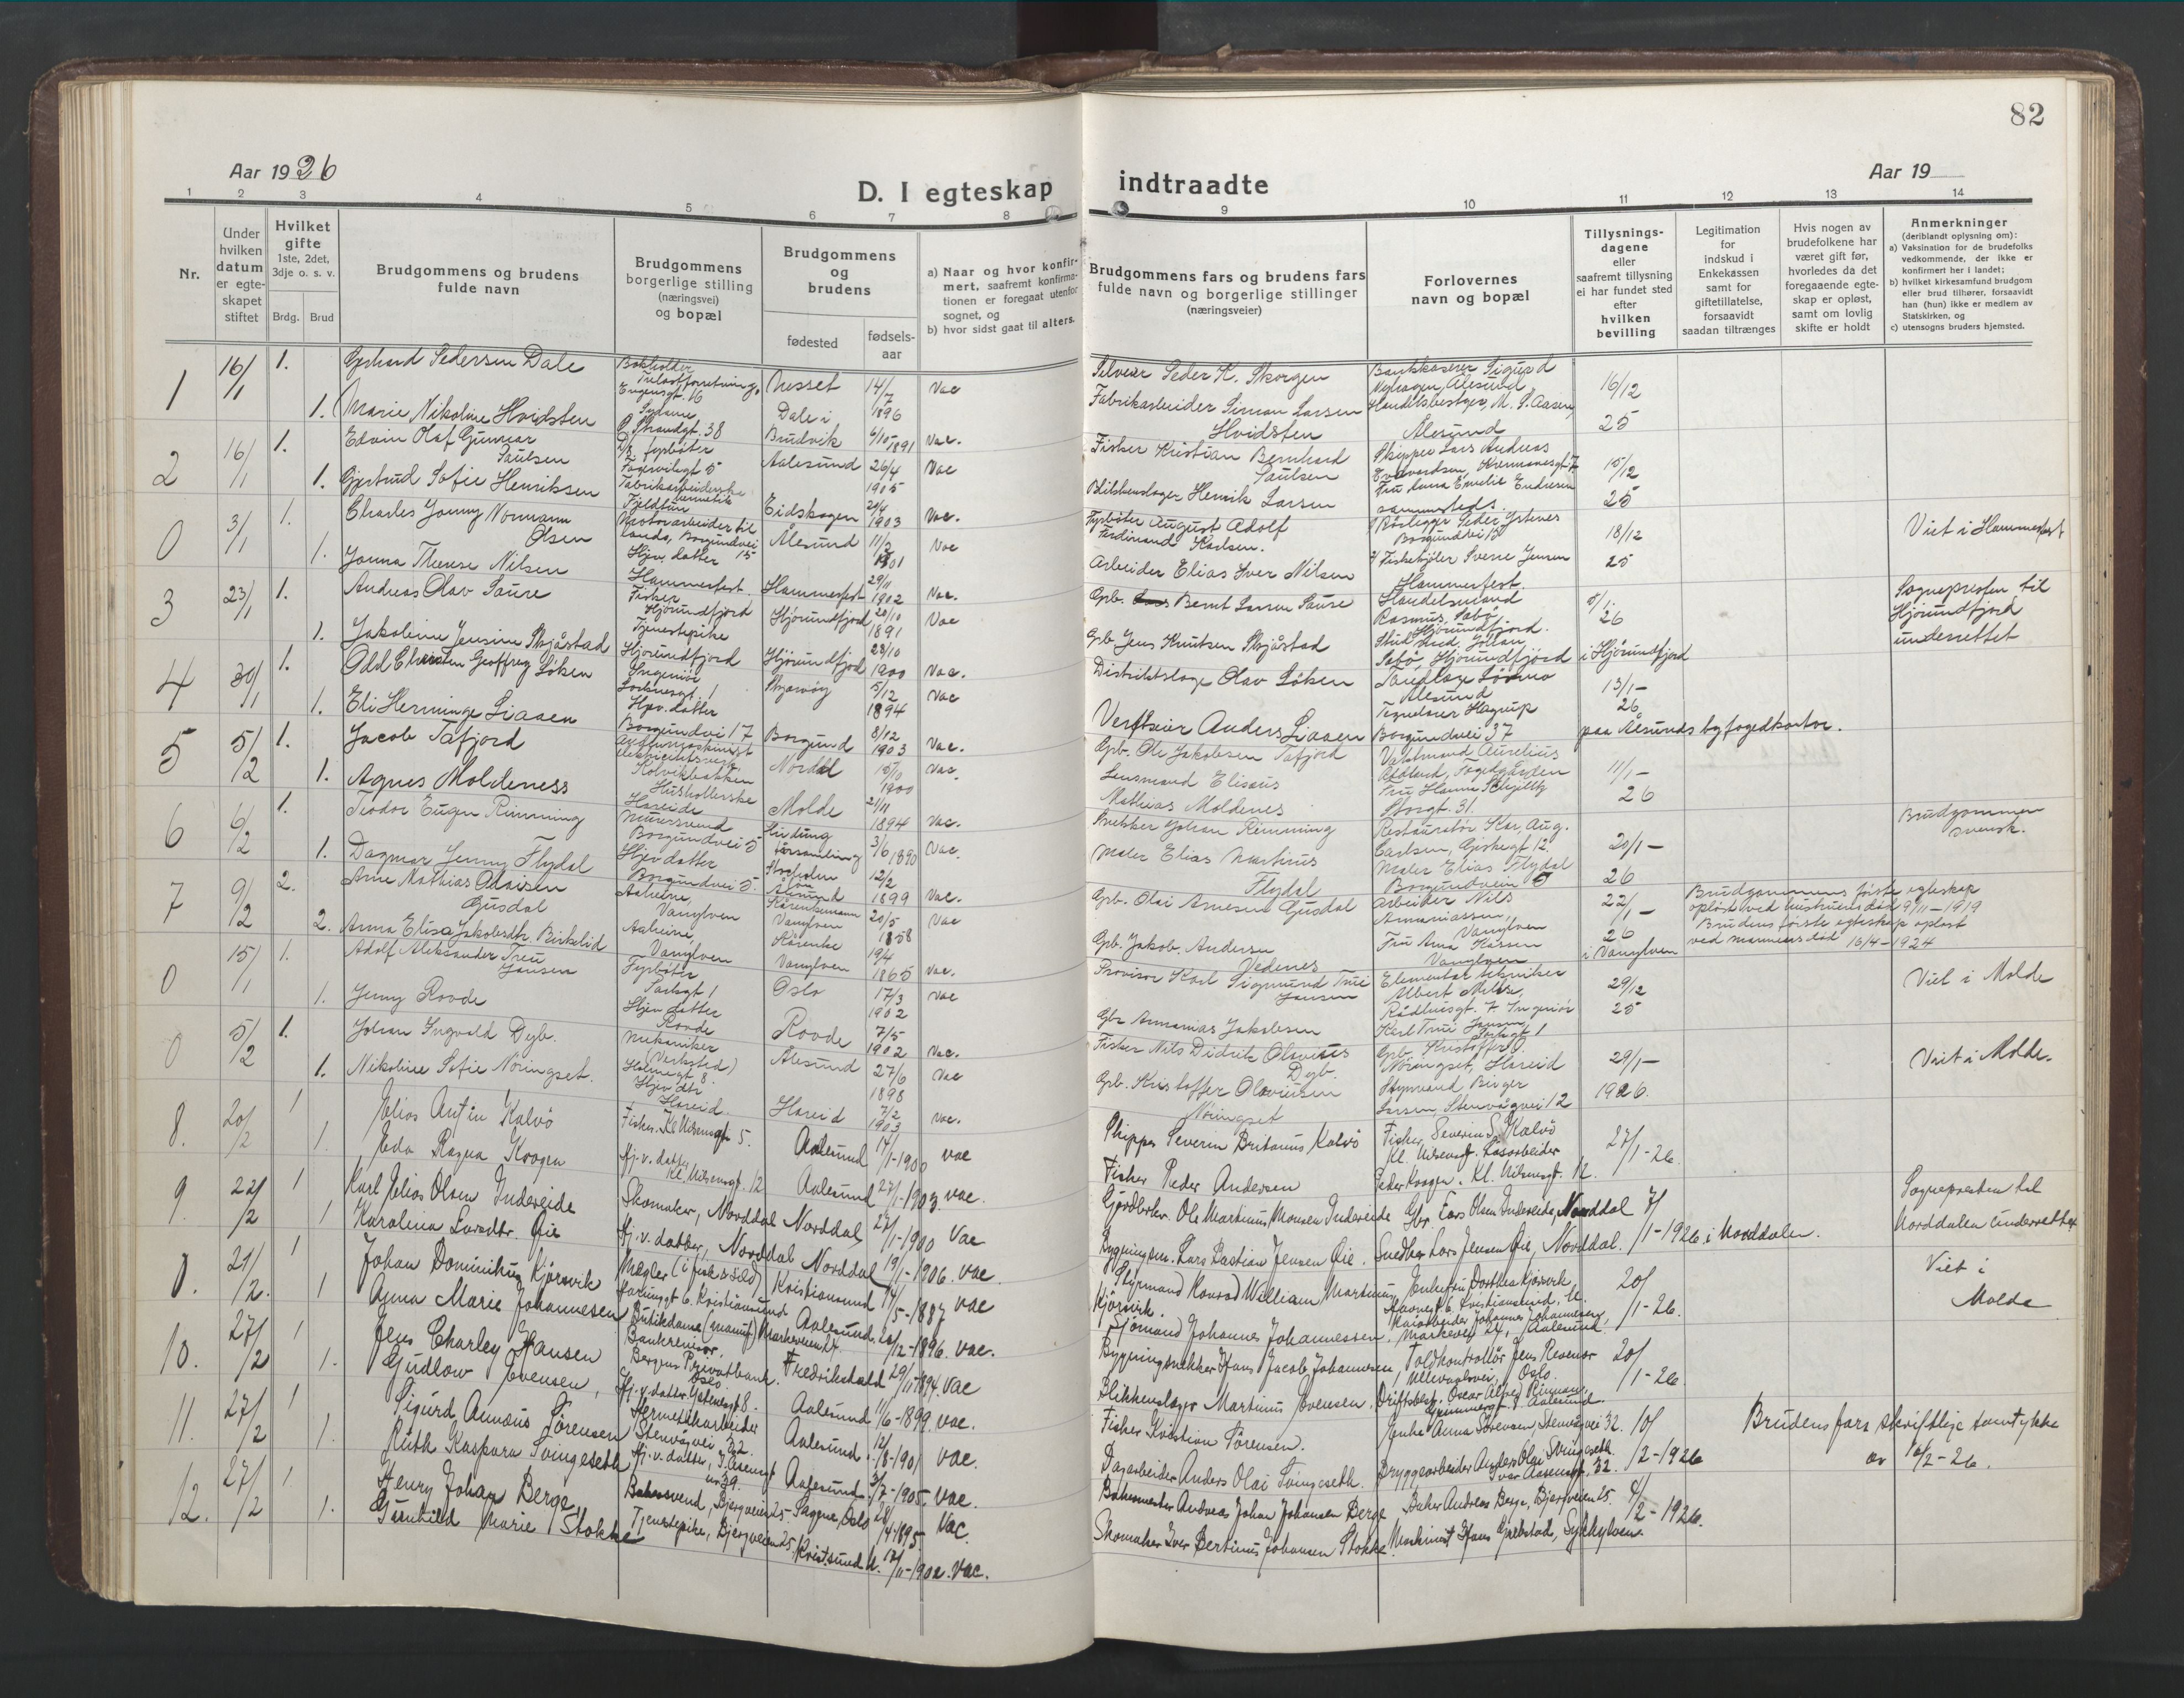 82
Aar 1926
Aar 19
D. I egteskap indtraadte
1 2 3 4 5 6 7 8 9 10 11 12 13 14
Nr.
Under hvilken datum er egteskapet stiftet
Hvilket gifte
1ste, 2det, 3dje o. s. v.
Brdg. Brud
Brudgommens og brudens fulde navn
Brudgommens borgerlige stilling (næringsvei) og bopæl
Brudgommens og brudens
fødested
fødsels-aar
a) Naar og hvor konfirmert, saafremt konfirmationen er foregaat utenfor sognet, og
b) hvor sidst gaat til alters.
Brudgommens fars og brudens fars fulde navn og borgerlige stillinger (næringsveier)
Forlovernes navn og bopæl
Tillysningsdagene eller saafremt tillysning ei har fundet sted efter hvilken bevilling
Legitimation for indskud i Enkekassen samt for giftetillatelse, forsaavidt saadan tiltrænges
Hvis nogen av brudefolkene har været gift før, hvorledes da det foregaaende egteskap er opløst, samt om lovlig skifte er holdt
Anmerkninger
(deriblandt oplysning om):
a) Vaksination for de brudefolks vedkommende, der ikke er konfirmert her i landet;
b) hvilket kirkesamfund brudgom eller brud tilhører, forsaavidt han (hun) ikke er medlem av Statskirken, og
c) utensogns bruders hjemsted.
1 16/1 1. Gerhard Pedersen Dale Bokholder Nesset 14/7 1896 Vac Peder K. Skorgen Ålesund 16/12
1. Marie Nikoline Hvidsten Strandgt. 38 Dale i Brudvik 6/10 1891 Vac. Fabrikarbeider Simon Larsen Hvidsten Ålesund 25
2 16/1 1. Edvin Olaf Gunnar Paulsen fyrbøter Aalesund 26/4 1905 Vac Fisker Kristian Bernhard Paulsen Skipper Lars Andreas 15/12
1. Gjertrud Sofie Henriksen Fabrikarbeiderske Eidskogen 1903 Vac. Blikkenslager Henrik Larsen sammesteds. 25
0 3/1 1. Charles Jonny Normann Olsen Borgundvei 15 Ålesund 11/2 1901 Vac Fyrbøter August Adolf Ferdinand Karlsen. Borgundvei 18/12 Viet i Hammerfest
1. Jonna Therese Nilsen Hjev. datter Hammerfest Hammerfest 29/11 1902 Vac. Arbeider Elias Iver Nilsen Sverre Jensen Hammerfest. 25
3 23/1 1. Andreas Olav Saure Fisker Hjørundfjord Hjørundfjord 20/10 1891 Vac Gpb. Bernt Larsen Saure Handelsmand Rasmus Sæbø, Hjørundfjord. 5/1. 26 Sognepresten til Hjørundfjord underrettet
1. Jakoline Jensine Skjåstad Tjenestepike Hjørundfjord Hjørundfjord 23/10 1900 Vac. Gpb Jens Knutsen Skjåstad Sæbø, Hjørundfjord i Hjørundfjord
4 30/1 1. Odd Christen Geoffrey Løken Ingeniør Skjervøy 5/12 1894 Vac Distriktslæge Olav Løken Ålesund 13/1- 26
1. Eli Herminge Liaaen Hjev. datter Borgundvei 17 Borgund 8/12 1903 Vac. Verftseier Anders Liaaen Borgundvei 37 paa Ålesunds byfogedkontor.
5 5/2 1. Jacob Tafjord Kolvikbakken Norddal 15/10 1900 Vac. Gpb. Ole Jakobsen Tafjord 11/1-
1. Agnes Moldeness Husholderske Hareide Molde 21/11 1894 Vac. Lensmand Elisæus Mathias Moldenes Storgt. 31. 26
6 6/2 1. Teodor Eugen Rimming Murersvend Borgundvei 5 3/6 1890 Vac. Snekker Johan Rimming Carlsen, Giskegt 12. 20/1- Brudgommen svensk.
1. Dagmar Jenny Flydal Hjev datter Borgundvei 5. Ålesund 12/2 1899 Vac. Maler Elias Martinus Flydal Maler Elias Flydal Borgundvein 5 26
7 9/2 2. Arne Mathias Olaisen Gusdal Aaheim, Vanylven Vanylven 20/5 1858 Vac Gpb. Olai Arnesen Gusdal Arbeider Nils Ananiassen, Vanylven 22/1- Brudgommens første egteskap opløst ved hustruens død 9/11-1919
2. Anna Elise Jakobsdtr. Birkelid Aaheim, Vanylven Vanylven 19/4 1865 Vac. Gpb. Jakob Andersen Vedenes Vanylven 26 i Vanylven Brudens første egteskap opløst ved mannens død 16/4-1924
0 15/1 1. Adolf Aleksander Treu Jansen Fyrbøter Oslo 17/3 1902 Vac Provisor Karl Sigmund Treu Jansen Albert Melsæ, Rådhusgt. 7 Ingeniør 29/12 Viet i Molde
1. Jenny Rovde Hjev datter Rovde Rovde 7/5 1902 Vac. Gbr Annanias Jakobsen Karl Treu Jansen 25
0 5/2 1. Johan Ingvald Dyb. Mekaniker (Verksted) Ålesund 27/6 1898 Vac Fisker Nils Didrik Olavius Dyb. Gpb. Kristoffer O. Nøringset, Hareid 29/1- Viet i Molde.
1. Nikoline Sofie Nøringset. Hjev dtr Hareid. Hareid 7/2 1903 Vac. Gpb. Kristoffer Olavinsen Nøringset Styrmand Birger Larsen, Stenvågvei 12 1926.
8. 20/2 1 Elias Antin Kalvø Fisker. Kl. Nilsensgt 5. Aalesund 14/1-1900 vac Skipper Severin Britanus Kalvø Fisker Severin S. Kalvø Kl. Nilsensgt. 27/1-26.
1. Eda Ragna Knogen Hj.v. datter Kl. Nilsensgt. 12 Aalesund 27/1-1903. vac. Fisker Peder Andersen Kl. Nilsensgt. 12.
9. 22/2 1 Karl Elias Olsen Indreeide Skomaker, Norddal Norddal 27/1-1900 Vac Gårdbrker. Ole Martinus Monsen Indreeide Gbr. Lars Olsen Indreeide, Norddal 7/1-1926. i Norddalen. Sognepresten til Norddalen underrettet
1 Karolina Larsdtr. Øie Hj.v. datter, Norddal Norddal 19/1-1906. vac. Bygningsm. Lars Bastian Jensen Øie. Snedker Lars Jensen Øie, Norddal.
0. 21/2. 1 Johan Dominikus Kjørsvik Mægler (i fisk & sild) Kristiansund 14/5-1887 vac Styrmand Konrad William Martinus Kjørsvik. Enkefru Dorthea Kjørsvik 20/1-26. Viet i Molde
1 Anna Marie Johannesen Butikdame (manuf) Aalesund. 20/12-1896. vac. Sjømand Johannes Johannessen. Johannes Johannesen, Markevei 24, Aalesund.
10. 27/2 1 Jens Charley Hansen Bankrevisor. Bergens Privatbank. Oslo Fredrikshald 29/11-1894. vac Bygningsnekker Hans Jacob Johannesen Toldkontrollør Jens Revenor Ullevaalsvei, Oslo. 20/1-26.
1. Gudlow Evensen, Hj.v. datter Aalesund 11/6-1899. vac. Blikkenslager Martinus Evensen, Oscar Alfred Rinnan, Aalesund.
11. 27/2 1 Sigurd Annæus Sørensen Hermetikarbeider Stenvågvei 32. Aalesund. 12/8-1901 vac. Fisker Kristian Sørensen. Enke Anna Sørensen, Stenvågvei 32. 10/2-1926 Brudens fars skriftlige samtykke av 10/2-26.
1. Ruth Kaspara Svingeseth Hj.v. datter, I. Aasensgt nr 39. Aalesund 3/7-1905. vac. Dagarbeider Anders Olai Svingseth. Bryggearbeider Anders Olai Svingseth. Ivar Aasensgt. 32.
12. 27/2 1 Henry Johan Berge, Bakersvend, Bjergveien 25 - Sagene, Oslo 4-1895. Vac. Bakermester Andreas Johan Johansen Berge Baker Andreas Berge, Bjergveien 25. 4/2-1926.
1. Gunhild Marie Stokke Tjenestepike, Bjergveien 25 Kristsund N. 12/11-1902. Vac. Skomaker Iver Bertinus Johansen Stokke. Maskinist Hans Grebstad, Sykkylven.